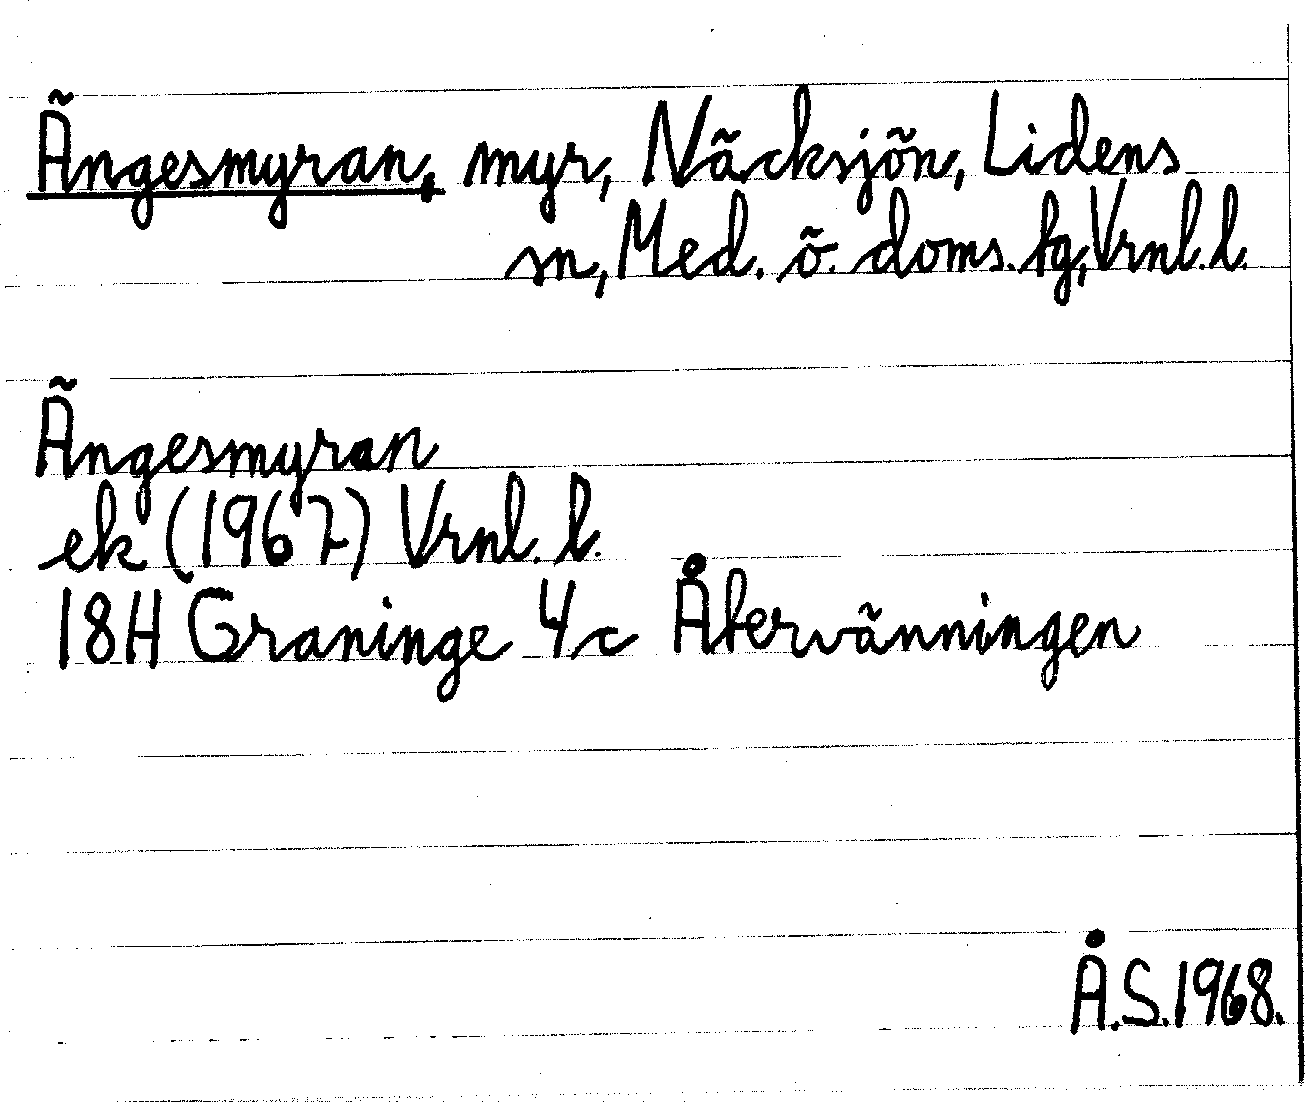 Ängesmyran, myr, Näcksjön, Lidens
sn, Med. ö. doms. tg, Vrnl. l.
Ängesmyran
ek (1967) Vrnl. l.
18H Graninge 4c Återvänningen
Å.S. 1968.